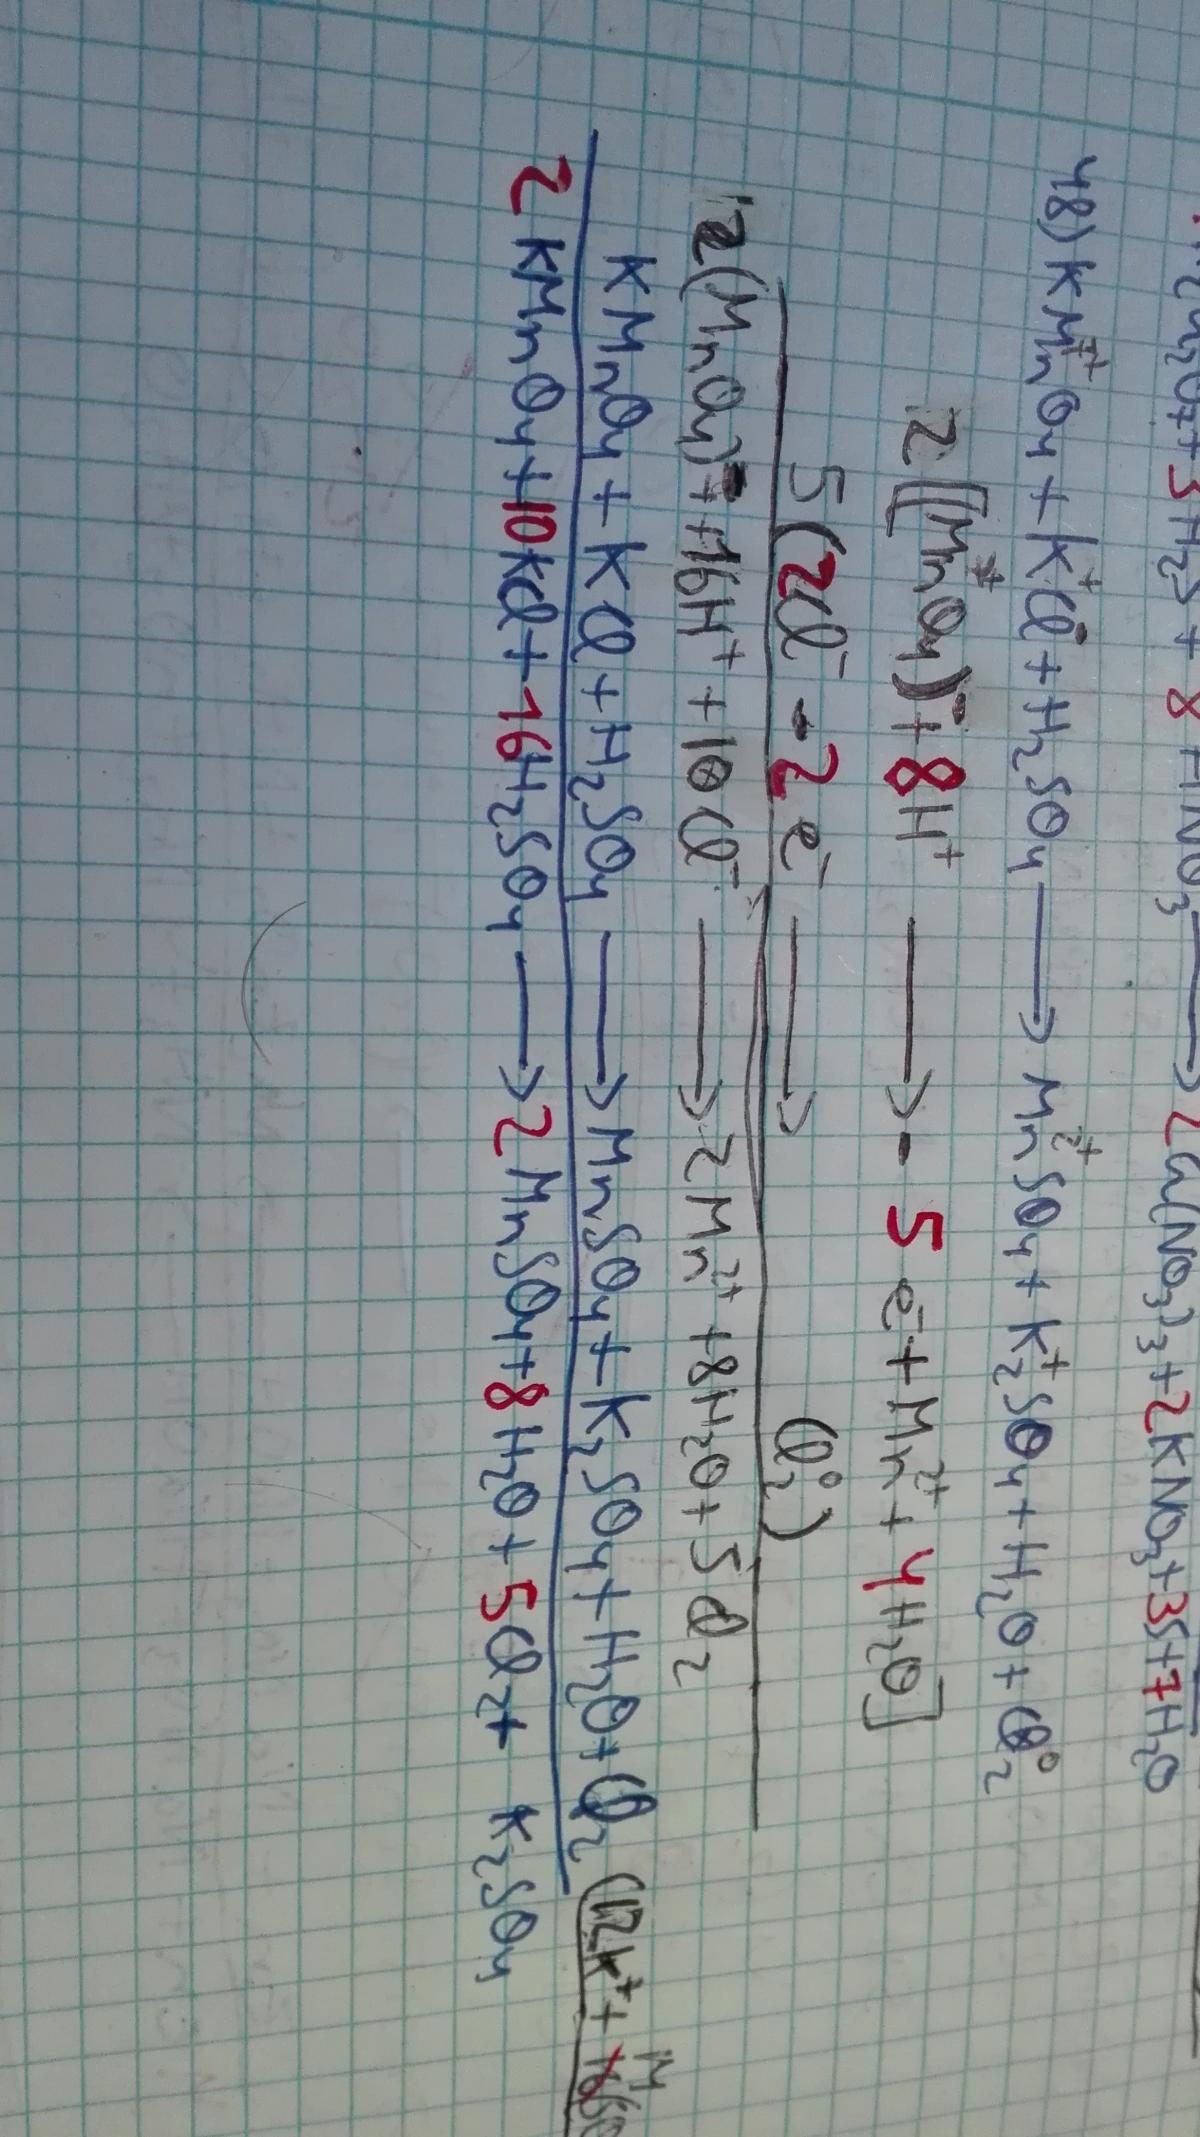 K₂Cr₂O₇ + 3H₂S + 8HNO₃ ⟶ 2Cr(NO₃)₃ + 2KNO₃ + 3S + 7H₂O
48) KMn⁷⁺O₄ + K⁺Cl⁻ + H₂SO₄ ⟶ Mn²⁺SO₄ + K₂⁺SO₄ + H₂O + Cl₂⁰
2[(Mn⁷⁺O₄)⁻ + 8H⁺ ⟶ - 5e⁻ + Mn²⁺ + 4H₂O]
5(2Cl⁻ - 2e⁻ ⟶ Cl₂⁰)
2(MnO₄)⁻ + 16H⁺ + 10Cl⁻ ⟶ 2Mn²⁺ + 8H₂O + 5Cl₂
KMnO₄ + KCl + H₂SO₄ ⟶ MnSO₄ + K₂SO₄ + H₂O + Cl₂ (12K⁺ +
2KMnO₄ + 10KCl + 16H₂SO₄ ⟶ 2MnSO₄ + 8H₂O + 5Cl₂ + K₂SO₄